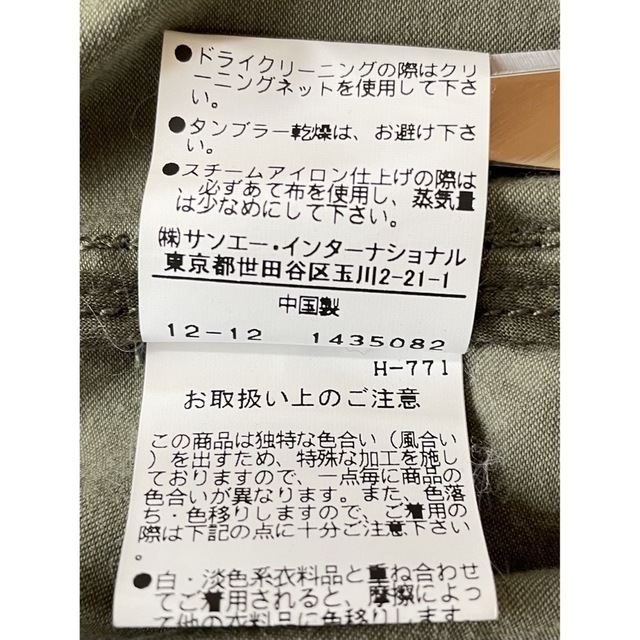 ●ドライクリーニングの際はクリ
ーニングネットを使用して下さ
い。
●タンブラー乾燥は、お避け下さ
い。
●スチームアイロン仕上げの際は
、必ずあて布を使用し、蒸気量
は少なめにして下さい。
㈱サンエー・インターナショナル
東京都世田谷区玉川2-21-1
中国製
12-12 1435082
H-771
お取扱い上のご注意
この商品は独特な色合い（風合い
）を出すため、特殊な加工を施し
ておりますので、一点毎に商品の
色合いが異なります。また、色落
ち・色移りしますので、ご着用の
際は下記の点に十分ご注意下さい
。
●白・淡色系衣料品と重ね合わせ
てご着用されると、摩擦によっ
て他の衣料品に色移りします。